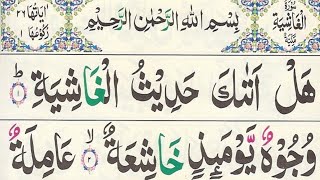 سورة الغاشية مكية
بِسْمِ اللّٰهِ الرَّحْمٰنِ الرَّحِيْمِ
اٰيَاتُهَا ٢٦ رُكُوْعُهَا ١
هَلْ اَتٰىكَ حَدِيْثُ الْغَاشِيَةِ ؕ ١
وُجُوْهٌ يَّوْمَىِٕذٍ خَاشِعَةٌ ۙ ٢ عَامِلَةٌ